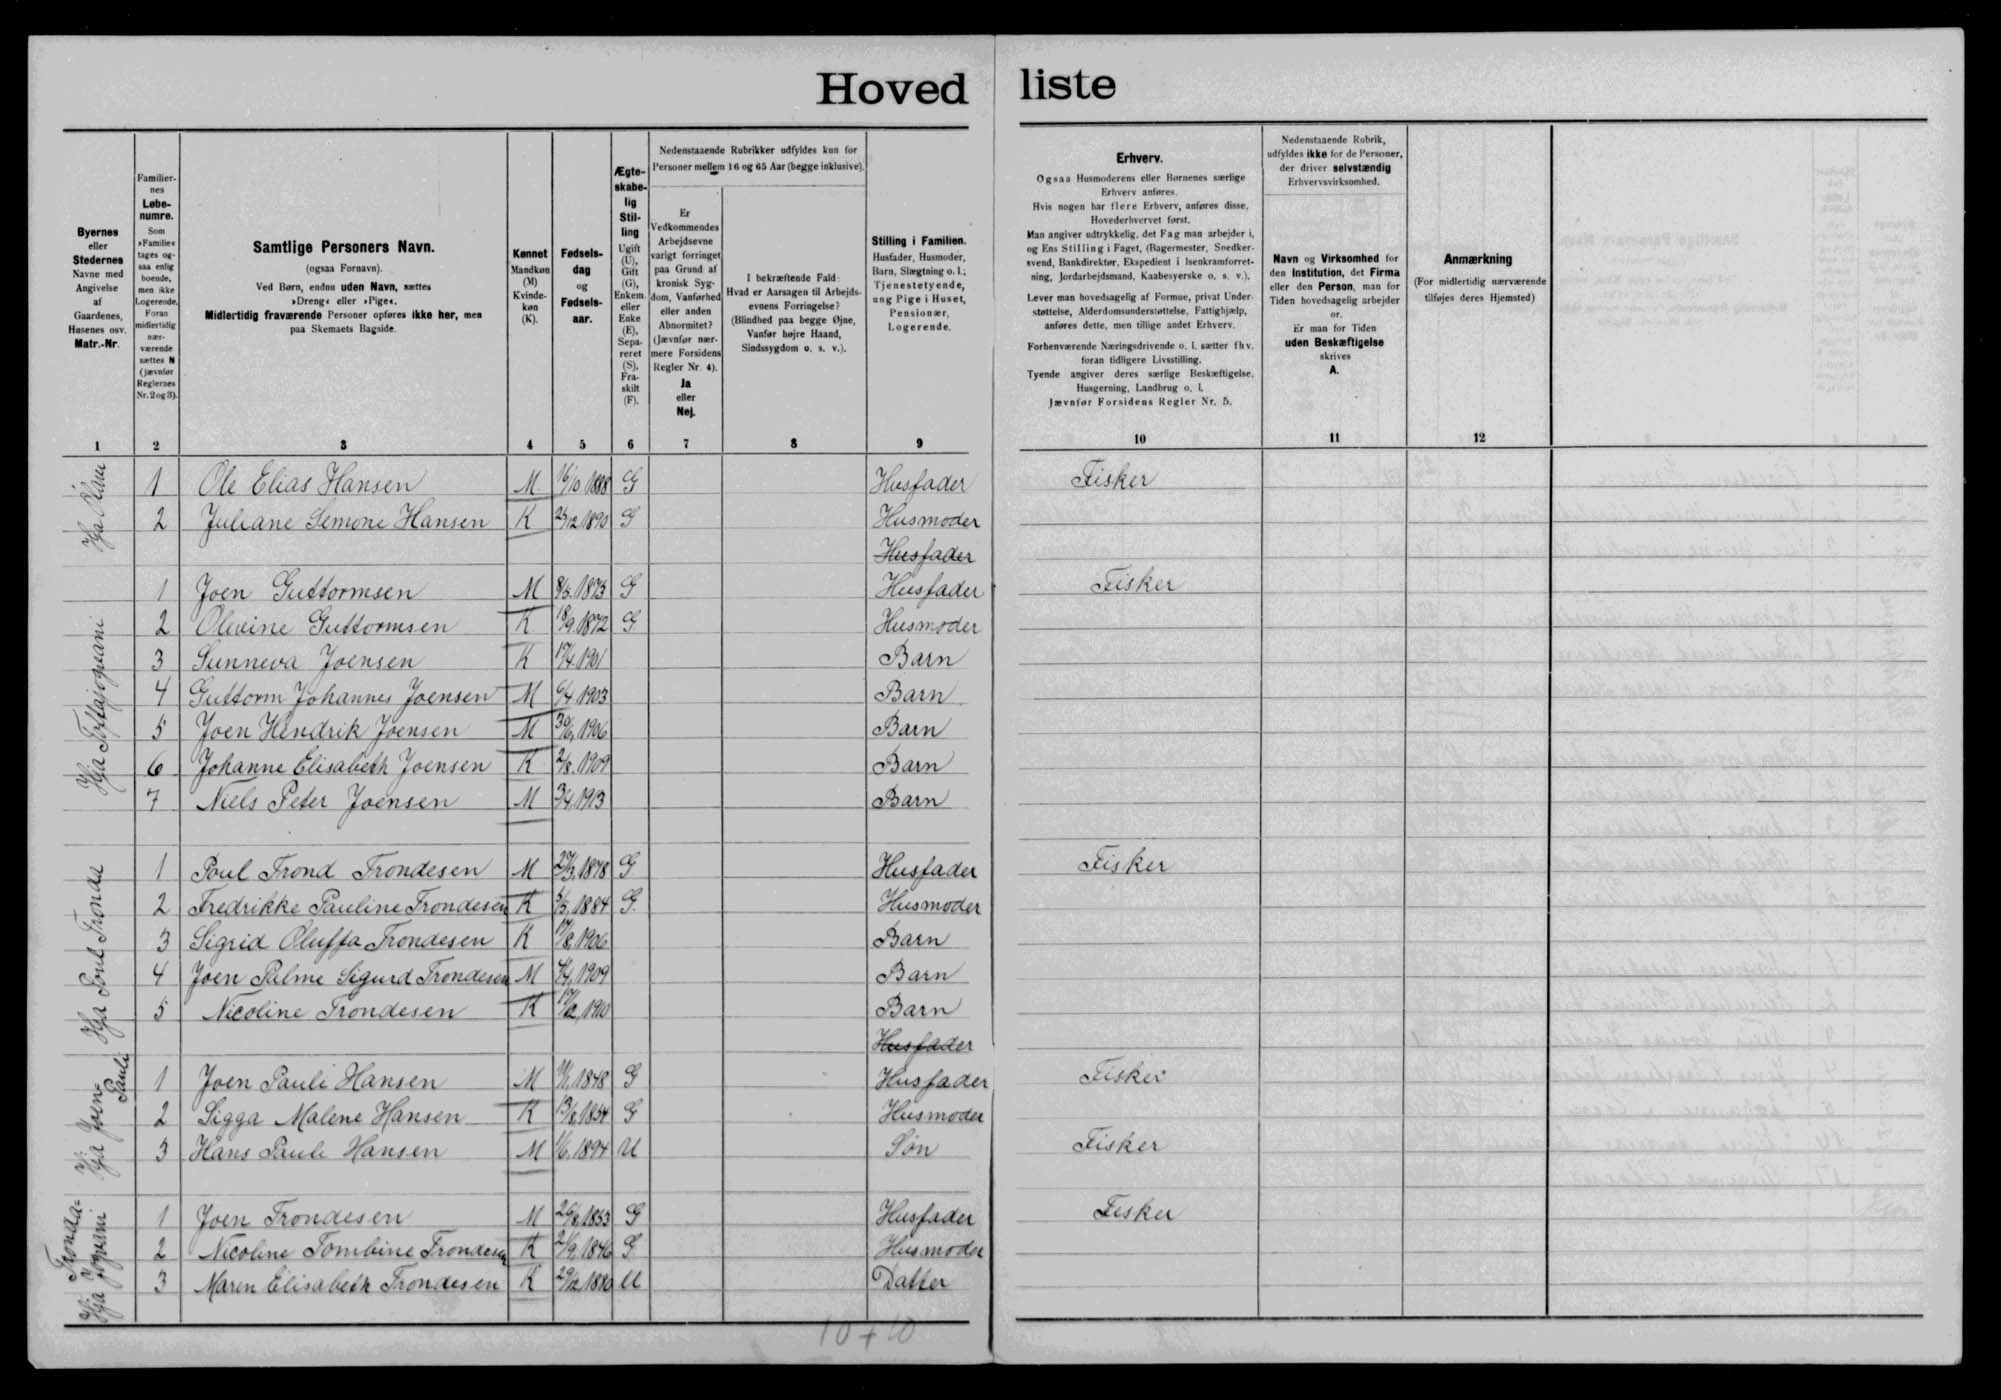 Hovedliste
Byernes
eller
Stedernes
Navne med
Angivelse
af
Gaardenes,
Husenes osv.
Matr.-Nr.
Familier-
nes
Løbe-
numre.
Som
»Familie«
tages og-
saa enlig
boende,
men ikke
Logerende.
Foran
midlertidig
nær-
værende
sættes N
(jævnfør
Reglernes
Nr. 2 og 3).
Samtlige Personers Navn.
(ogsaa Fornavn).
Ved Børn, endnu uden Navn, sættes
»Dreng« eller »Pige«.
Midlertidig fraværende Personer opføres ikke her, men
paa Skemaets Bagside.
Kønnet
Mandkøn
(M)
Kvinde-
køn
(K).
Fødsels-
dag
og
Fødsels-
aar.
Ægte-
skabe-
lig
Stil-
ling
Ugift
(U),
Gift
(G),
Enkem.
eller
Enke
(E),
Sepa-
reret
(S),
Fra-
skilt
(F).
Nedenstaaende Rubrikker udfyldes kun for
Personer mellem 16 og 65 Aar (begge inklusive).
Er
Vedkommendes
Arbejdsevne
varigt forringet
paa Grund af
kronisk Syg-
dom, Vanførhed
eller anden
Abnormitet?
(Jævnfør nær-
mere Forsidens
Regler Nr. 4).
Ja
eller
Nej.
I bekræftende Fald:
Hvad er Aarsagen til Arbejds-
evnens Forringelse?
(Blindhed paa begge Øjne,
Vanfør højre Haand,
Sindssygdom o. s. v.).
Stilling i Familien.
Husfader, Husmoder,
Barn, Slægtning o. l.;
Tjenestetyende,
ung Pige i Huset,
Pensionær,
Logerende.
Erhverv.
Ogsaa Husmoderens eller Børnenes særlige
Erhverv anføres.
Hvis nogen har flere Erhverv, anføres disse,
Hovederhvervet først.
Man angiver udtrykkelig, det Fag man arbejder i,
og Ens Stilling i Faget, (Bagermester, Snedker-
svend, Bankdirektør, Ekspedient i Isenkramforret-
ning, Jordarbejdsmand, Kaabesyerske o. s. v.).
Lever man hovedsagelig af Formue, privat Under-
støttelse, Alderdomsunderstøttelse, Fattighjælp,
anføres dette, men tillige andet Erhverv.
Forhenværende Næringsdrivende o. l. sætter fhv.
foran tidligere Livsstilling.
Tyende angiver deres særlige Beskæftigelse,
Husgerning, Landbrug o. l.
Jævnfør Forsidens Regler Nr. 5.
Nedenstaaende Rubrik,
udfyldes ikke for de Personer,
der driver selvstændig
Erhvervsvirksomhed.
Navn og Virksomhed for
den Institution, det Firma
eller den Person, man for
Tiden hovedsagelig arbejder
for.
Er man for Tiden
uden Beskæftigelse
skrives
A.
Anmærkning
(For midlertidig nærværende
tilføjes deres Hjemsted)
1 2 3 4 5 6 7 8 9 10 11 12
1 Ole Elias Hansen M 16/10 1888 G Husfader Fisker
2 Juliane Semone Hansen K 1890 G Husmoder
Husfader
1 Joen Guttormsen M 8/3 1873 G Husfader Fisker
2 Olevine Guttormsen K 18/9 1872 G Husmoder
3 Sunneva Joensen K 17/4 1901 Barn
4 Guttorm Johannes Joensen M 6/4 1903 Barn
5 Joen Hendrik Joensen M 1906 Barn
6 Johanne Elisabeth Joensen K 2/8 1909 Barn
7 Niels Peter Joensen M 3/4 1913 Barn
Hja Poul Tronda
1 Poul Trond Trondesen M 27/3 1878 G Husfader Fisker
2 Fredrikke Pauline Trondesen K 1884 G Husmoder
3 Sigrid Oluffa Trondesen K 17/8 1906 Barn
4 Joen Palme Sigurd Trondesen M 1909 Barn
5 Nicoline Trondesen K 1910 Barn
Husfader
Hja Joen-Pauli
1 Joen Pauli Hansen M 1848 G Husfader Fisker
2 Sigga Malene Hansen K 13/8 1854 G Husmoder
3 Hans Pauli Hansen M 1/6 1894 U Søn Fisker
1 Joen Trondesen M 26/8 1853 G Husfader Fisker
2 Nicoline Tombine Trondesen K 2/9 1846 G Husmoder
3 Maren Elisabeth Trondesen K 29/12 1880 U Datter
10 + 10